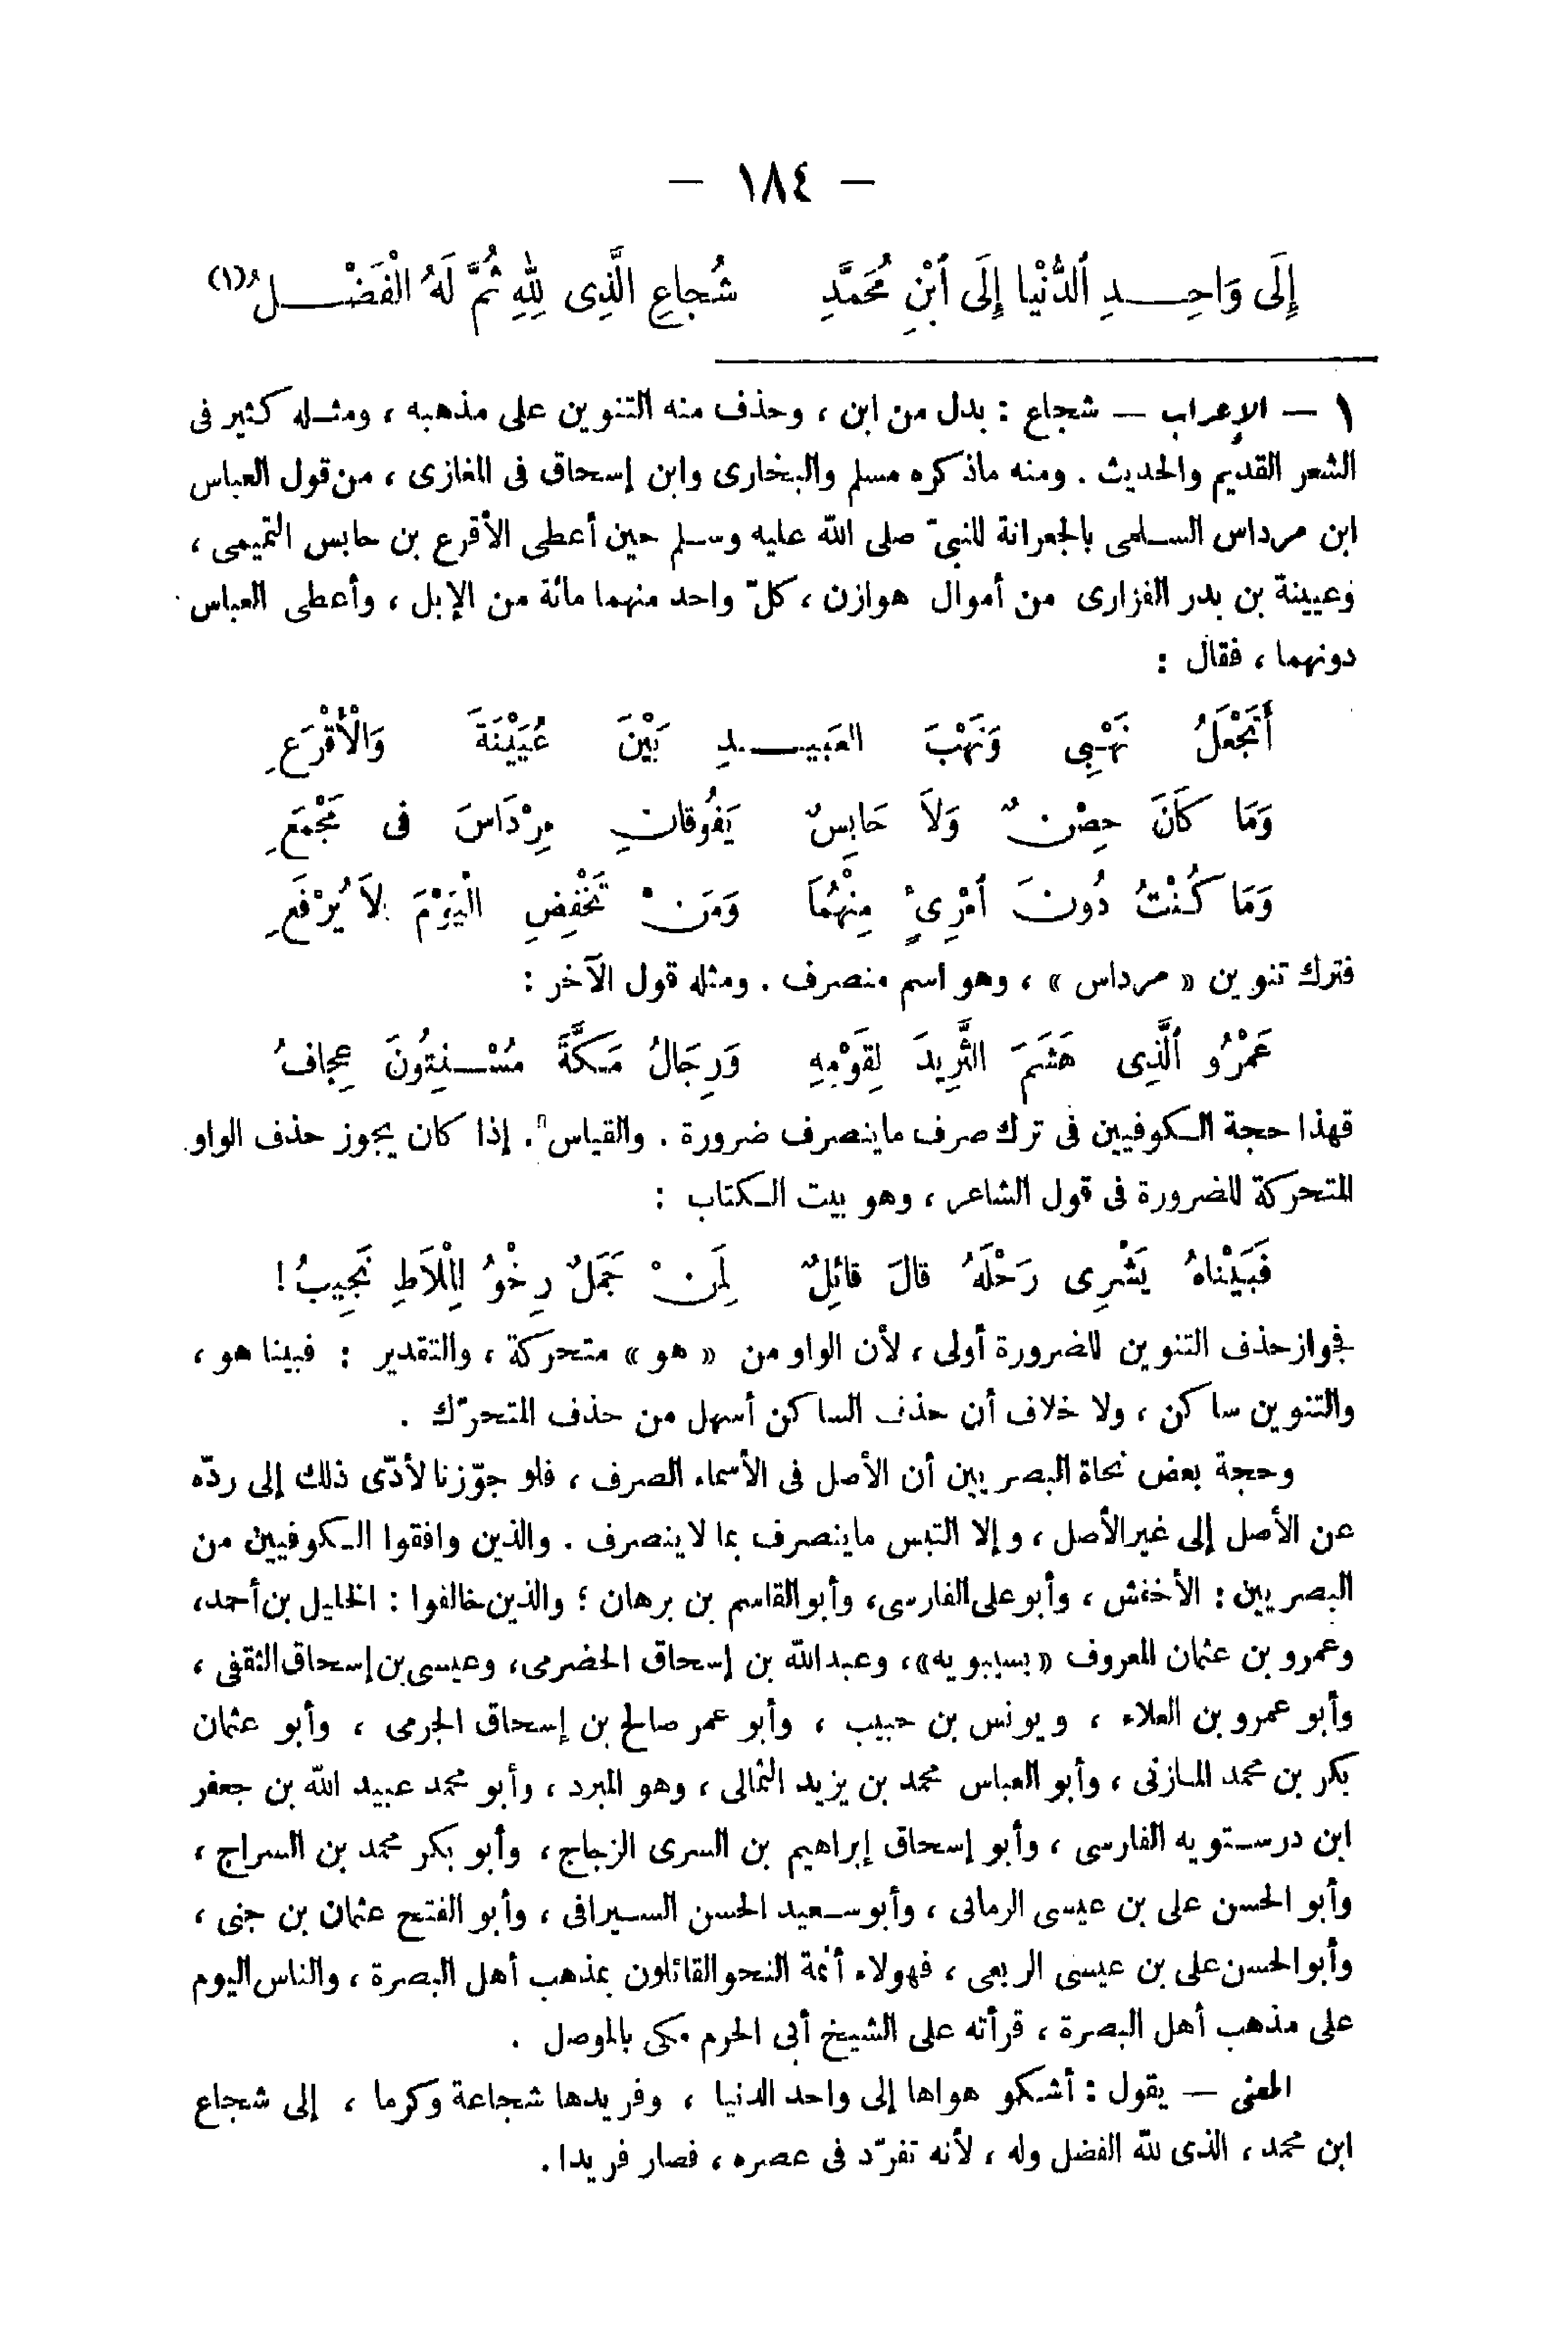 — ١٨٤ —
إِلَى وَاحِدِ ٱلدُّنْيا إِلَى ٱبْنِ مُحَمَّدِ شُجاعِ الَّذِى لِلهِ ثُمَّ لَهُ الْفَضْلُ(١)
١ — الإعراب — شجاع : بدل من ابن ، وحذف منه التنوين على مذهبه ، ومثله كثير فى
الشعر القديم والحديث . ومنه ماذكره مسلم والبخارى وابن إسحاق فى المغازى ، من قول العباس
ابن مرداس السلمى بالجعرانة للنبىّ صلى الله عليه وسلم حين أعطى الأقرع بن حابس التميمى ،
وعيينة بن بدر الفزارى من أموال هوازن ، كلّ واحد منهما مائة من الإبل ، وأعطى العباس
دونهما ، فقال :
أَتَجْعَلُ نَهْبِى وَنَهْبَ العَبِيدِ بَيْنَ عُيَيْنَةَ وَالْأَقْرَعِ
وَمَا كَانَ حِصْنٌ وَلاَ حَابِسٌ يَفُوقانِ مِرْدَاسَ فى مَجْمَعِ
وَمَا كُنْتُ دُونَ ٱمْرِئٍ مِنْهُمَا وَمَنْ تَخْفِضِ الْيَوْمَ لاَ يُرْفَعِ
فترك تنوين « مرداس » ، وهو اسم منصرف . ومثله قول الآخر :
عَمْرُو ٱلَّذِى هَشَمَ الثَّرِيدَ لِقَوْمِهِ وَرِجَالُ مَكَّةَ مُسْنِتُونَ عِجافُ
فهذا حجة الكوفيين فى ترك صرف ماينصرف ضرورة . والقياس . إذا كان يجوز حذف الواو
المتحركة للضرورة فى قول الشاعر ، وهو بيت الكتاب :
فَبَيْناهُ يَشْرِى رَحْلَهُ قالَ قائِلٌ لِمَنْ جَمَلٌ رِخْوُ المِلاَطِ نَجِيبُ !
فجواز حذف التنوين للضرورة أولى ، لأن الواو من « هو » متحركة ، والتقدير : فبينا هو ،
والتنوين ساكن ، ولا خلاف أن حذف الساكن أسهل من حذف المتحرّك .
وحجة بعض نحاة البصريين أن الأصل فى الأسماء الصرف ، فلو جوّزنا لأدّى ذلك إلى ردّه
عن الأصل إلى غير الأصل ، وإلا التبس ماينصرف بما لا ينصرف . والذين وافقوا الكوفيين من
البصريين : الأخفش ، وأبو على الفارسى، وأبو القاسم بن برهان ؛ والذين خالفوا : الخليل بن أحمد،
وعمرو بن عثمان المعروف « بسيبويه»، وعبد الله بن إسحاق الحضرمى، وعيسى بن إسحاق الثقفى ،
وأبو عمرو بن العلاء ، ويونس بن حبيب ، وأبو عمر صالح بن إسحاق الجرمى ، وأبو عثمان
بكر بن محمد المازنى ، وأبو العباس محمد بن يزيد الثمالى ، وهو المبرد ، وأبو محمد عبيد الله بن جعفر
ابن درستويه الفارسى ، وأبو إسحاق إبراهيم بن السرى الزجاج، وأبو بكر محمد بن السراج ،
وأبو الحسن على بن عيسى الرمانى ، وأبو سعيد الحسن السيرافى ، وأبو الفتح عثمان بن جنى ،
وأبو الحسن على بن عيسى الربعى ، فهولاء أئمة النحو القائلون بمذهب أهل البصرة ، والناس اليوم
على مذهب أهل البصرة ، قرأته على الشيخ أبى الحرم مكى بالموصل .
المعنى — يقول : أشكو هواها إلى واحد الدنيا ، وفريدها شجاعة وكرما ، إلى شجاع
ابن محمد ، الذى لله الفضل وله ، لأنه تفرّد فى عصره ، فصار فريدا .